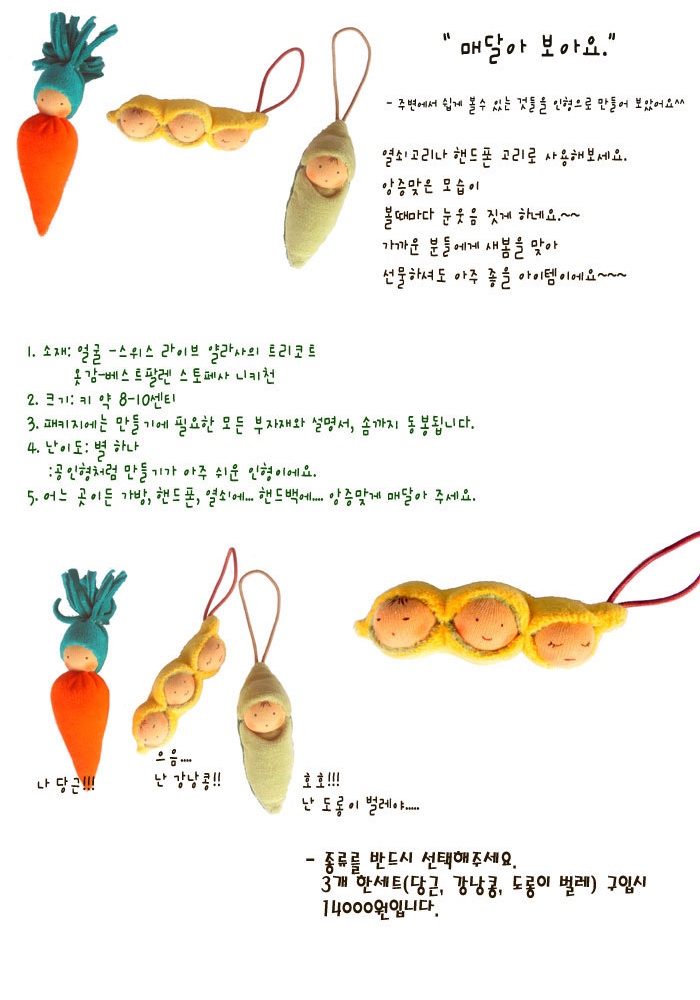 " 매달아 보아요."
- 주변에서 쉽게 볼수 있는 것들을 인형으로 만들어 보았어요^^
열쇠고리나 핸드폰 고리로 사용해보세요.
앙증맞은 모습이
볼때마다 눈웃음 짓게 하네요.~~
가까운 분들에게 새봄을 맞아
선물하셔도 아주 좋을 아이템이에요~~~
1. 소재: 얼굴 -스위스 라이브 얄라사의 트리코트
옷감-베스트팔렌 스토페사 니키천
2. 크기: 키 약 8-10센티
3. 패키지에는 만들기에 필요한 모든 부자재와 설명서, 솜까지 동봉됩니다.
4. 난이도: 별 하나
:공인형처럼 만들기가 아주 쉬운 인형이에요.
5. 어느 곳이든 가방, 핸드폰, 열쇠에... 핸드백에.... 앙증맞게 매달아 주세요.
나 당근!!!
으음....
난 강낭콩!!
호호!!!
난 도롱이 벌레야.....
- 종류를 반드시 선택해주세요.
3개 한세트(당근, 강낭콩, 도롱이 벌레) 구입시
14000원입니다.